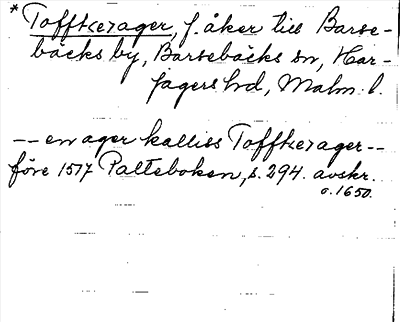 *Tofftkerager, f. åker till Barse-
bäcks by, Barsebäcks sn, Har-
jagers hd, Malm. l.
-- en ager kalliss Tofftkerager --
före 1517 Palteboken, s. 294. avskr.
o. 1650.